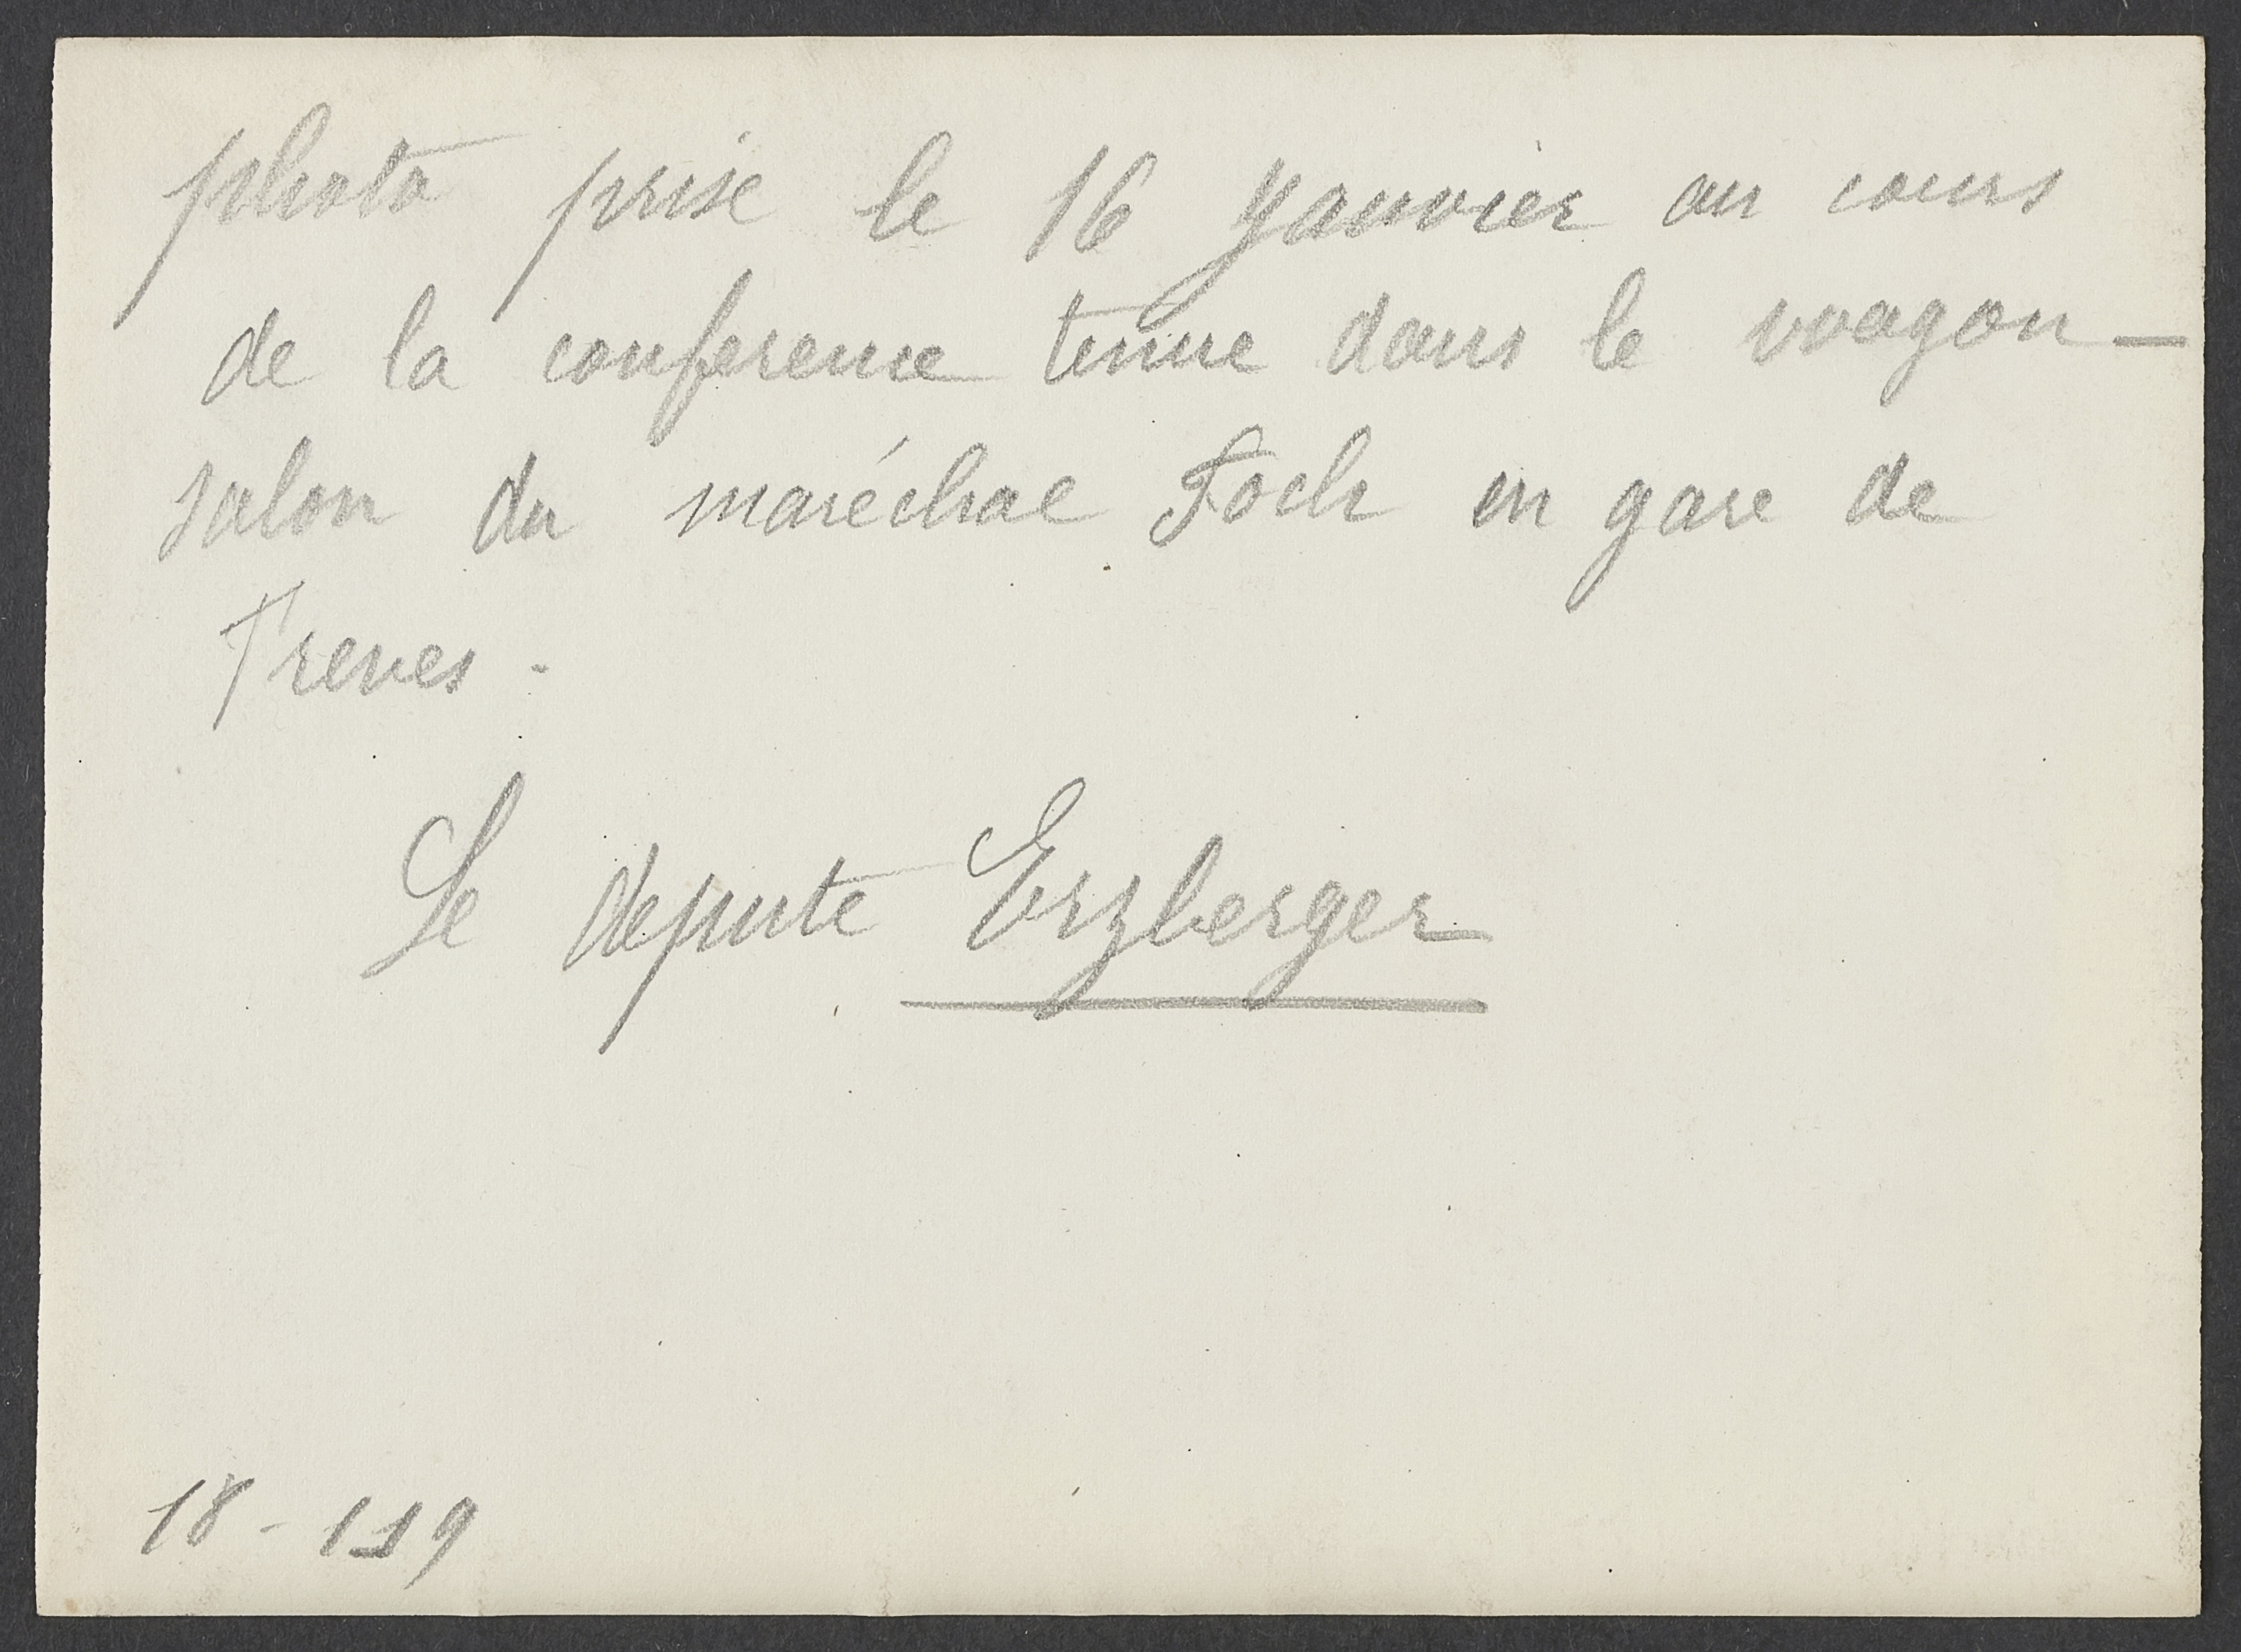 photo prise le 16 Janvier au cours
de la conference tenue dans le wagon-
salon du maréchal Foch en gare de
Treves.
Le depute Erzberger
18-119